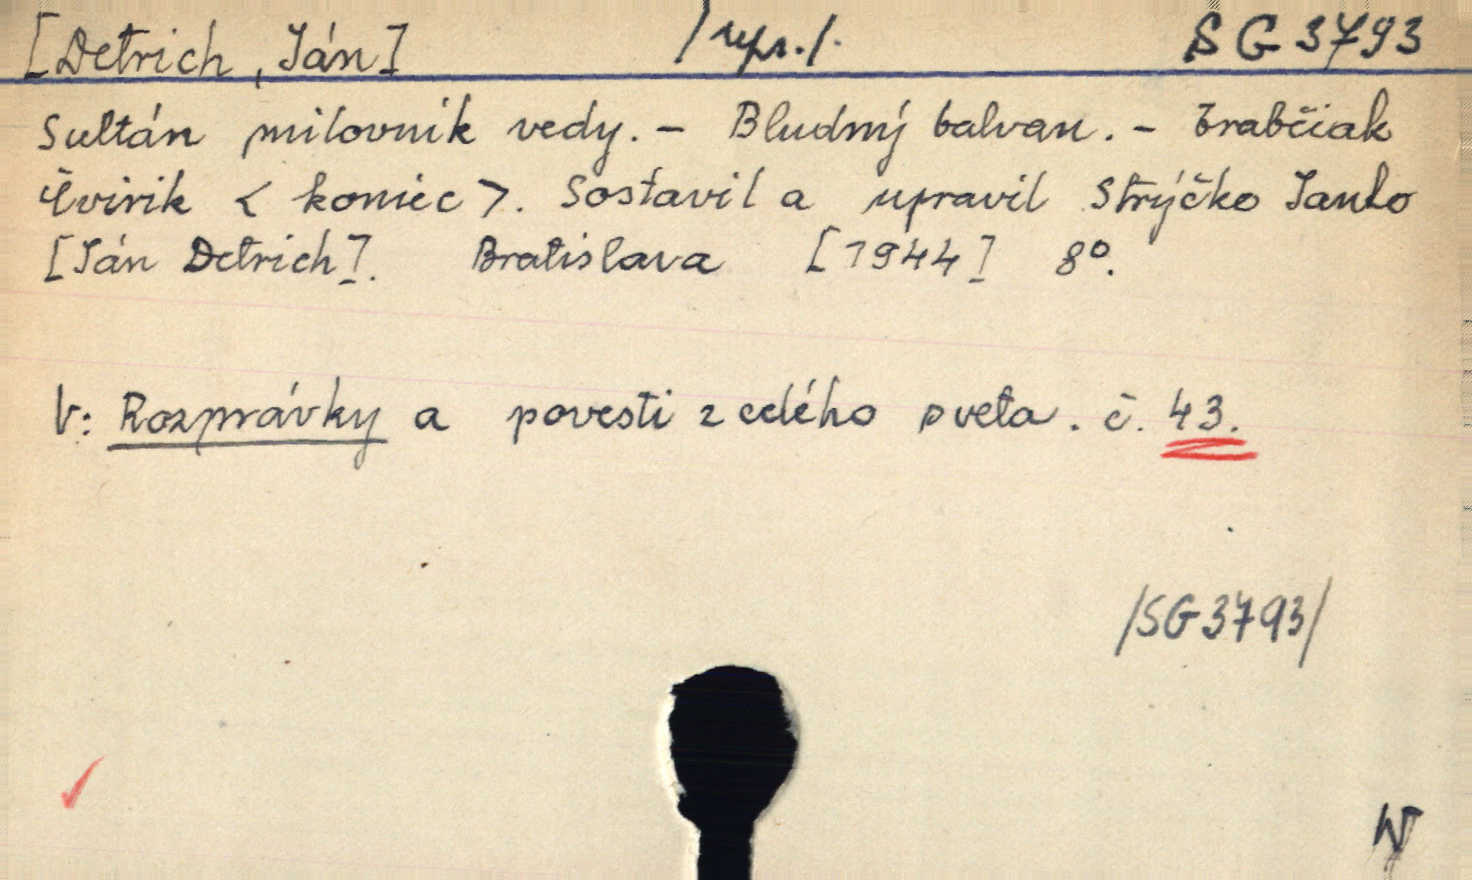 [Detrich, Ján] /upr./. SG 3793
Sultán milovník vedy. - Bludný balvan. - Vrabčiak
Čvirik < koniec >. Sostavil a upravil Strýčko Janko
[Ján Detrich]. Bratislava [1944] 8°.
V: Rozprávky a povesti z celého sveta. č. 43.
/SG3793/